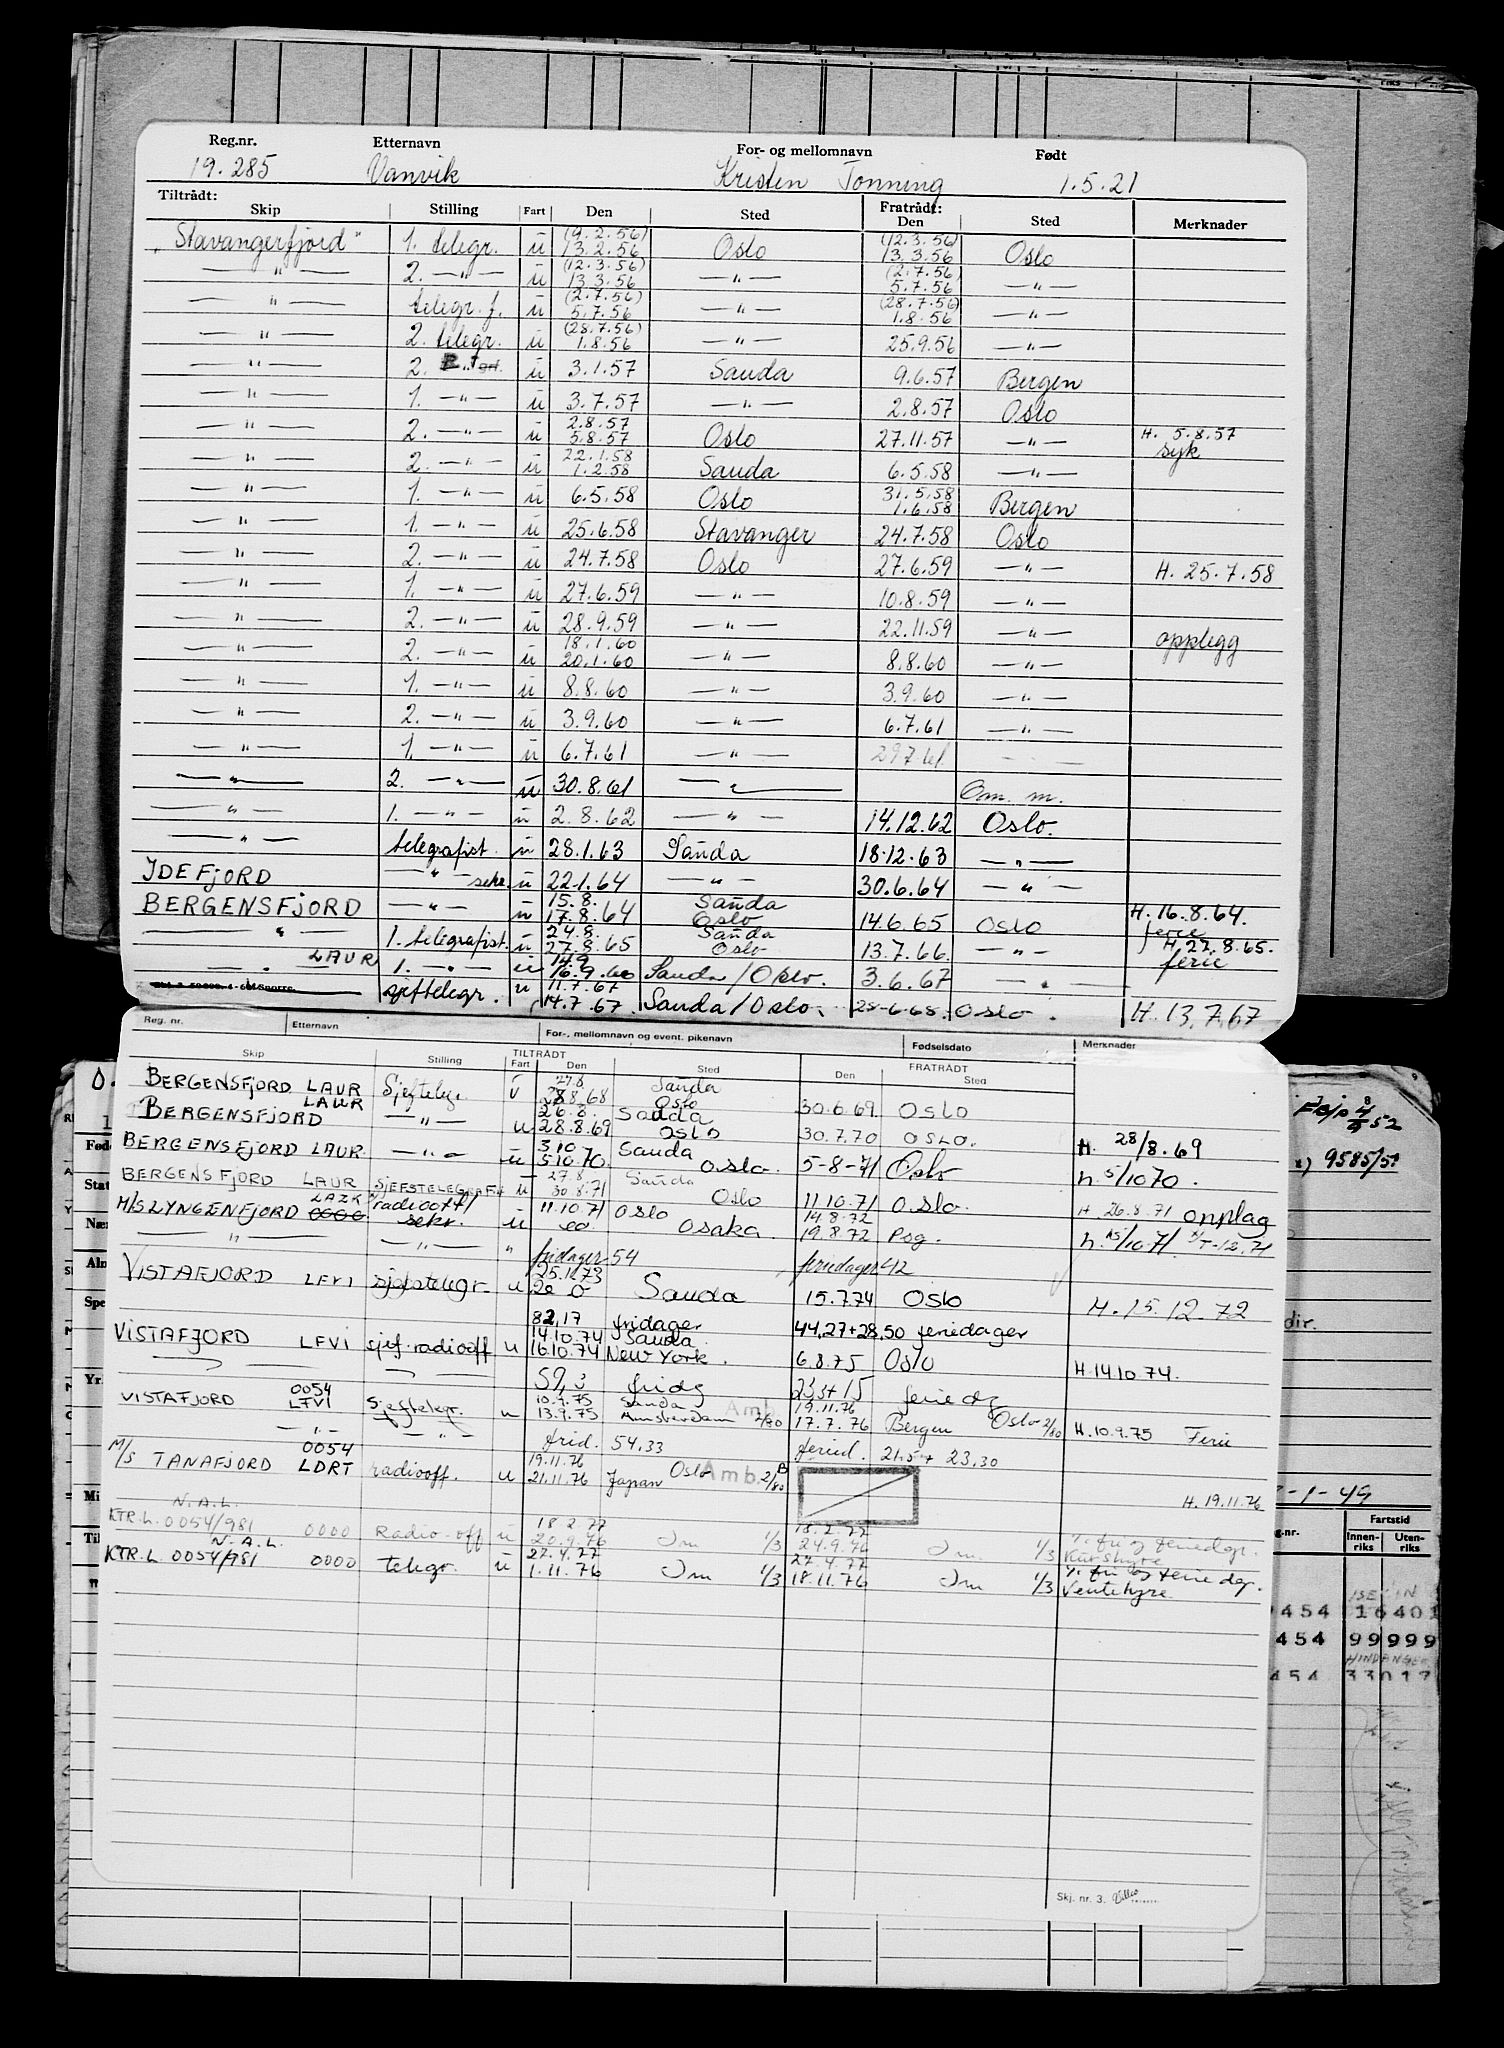 Reg.nr. Etternavn For- og mellomnavn Født
19.285 Vanvik Kristen Tonning 1.5.21
Tiltrådt: Fratrådt:
Skip Stilling Fart Den Sted Den Sted Merknader
"Stavangerfjord" 1. telegr. u (9.2.56) 13.2.56 Oslo (12.3.56) 13.3.56 Oslo
— " — 2. — " — u (12.3.56) 13.3.56 — " — (2.7.56) 5.7.56 — " —
— " — telegr. f. u (2.7.56) 5.7.56 — " — (28.7.56) 1.8.56 — " —
— " — 2. telegr. u (28.7.56) 1.8.56 — " — 25.9.56 — " —
— " — 2. u 3.1.57 Sauda 9.6.57 Bergen
— " — 1. — " — u 3.7.57 — " — 2.8.57 Oslo
— " — 2. — " — u 2.8.57 5.8.57 Oslo 27.11.57 — " — H. 5.8.57 syk
— " — 2. — " — u 22.1.58 1.2.58 Sauda 6.5.58 — " —
— " — 1. — " — u 6.5.58 Oslo 31.5.58 1.6.58 Bergen
— " — 1. — " — u 25.6.58 Stavanger 24.7.58 Oslo
— " — 2. — " — u 24.7.58 Oslo 27.6.59 — " — H. 25.7.58
— " — 1. — " — u 27.6.59 — " — 10.8.59 — " —
— " — 2. — " — u 28.9.59 — " — 22.11.59 — " — opplegg
— " — 2. — " — u 18.1.60 20.1.60 — " — 8.8.60 — " —
— " — 1. — " — u 8.8.60 — " — 3.9.60 — " —
— " — 2. — " — u 3.9.60 — " — 6.7.61 — " —
— " — 1. — " — u 6.7.61 — " — 29.7.61 — " —
— " — 2. — " — u 30.8.61 — " — Om. m.
— " — 1. — " — u 2.8.62 — " — 14.12.62 Oslo.
— " — telegrafist. u 28.1.63 Sauda 18.12.63 — " —
IDEFJORD — " — sekr. u 22.1.64 — " — 30.6.64 — " —
BERGENSFJORD — " — u 15.8. 17.8.64 Sauda Oslo 14.6.65 Oslo H. 16.8.64. ferie
— " — 1. telegrafist. u 24.8. 27.8.65 Sauda Oslo 13.7.66. — " — H. 27.8.65. ferie
— " — LAUR 1. — " — u 14.9 16.9.60 Sauda/Oslo. 3.6.67 — " —
sjeftelegr. u 11.7.67 14.7.67. Sauda/Oslo. 28-6-68. Oslo. H. 13.7.67
Reg. nr. Etternavn For-, mellomnavn og event. pikenavn Fødselsdato Merknader
TILTRÅDT FRATRÅDT
Skip Stilling Fart Den Sted Den Sted
BERGENSFJORD LAUR Sjeftelegr. u 27.8. 28.8.68 Sauda Oslo 30.6.69. OSLO
BERGENSFJORD LAUR — " — u 26.8. 28.8.69 Sauda OSLO 30.7.70 OSLO. H. 28/8.69
BERGENSFJORD LAUR — " — u 3.10 5.10.70 Sauda OSLO. 5-8-71 Oslo h. 5/10 70.
BERGENSFJORD LAUR SJEFSTELEGRAFIST u 27.8 30.8.71 Sauda Oslo 11.10.71 Oslo. H. 26.8.71 opplag
M/S LYNGENFJORD LAZK radiooff/ sekr. u 11.10.71 OSLO Osaka 14.8.72 19.8.72 Psg. h. 15/10.71.
— " — — " — " fridager 54 feriedager 42
VISTAFJORD LFVI sjefstelegr. u 25.1.73 Sauda 15.7.74 Oslo H. 15.12.72
82,17 fridager 44,27+28,50 feriedager
VISTAFJORD LFVI sjef.radiooff u 14.10.74 16.10.74 Sauda New York. 6.8.75 Oslo H. 14.10.74.
59,3 fridg 23,3+15 feriedg
VISTAFJORD 0054 LFVI Sjeftelegr. u 10.9.75 13.9.75 Sauda Amsterdam Amb. 2/80 19.11.76 17.7.76 Bergen Oslo 2/80 H. 10.9.75 Ferie
— " — — " — frid. 54.33 feried. 21.5+ 23.30
M/S TANAFJORD 0054 LDRT radiooff. u 19.11.76 21.11.76 Japan Oslo Amb. 2/80 H. 19.11.76
N.A.L.
KTR.L. 0054/981 0000 Radio-off u 18.2.77 20.9.76 Dm 1/3 18.2.77 24.9.76 Dm 1/3 Kurshyre
N.A.L.
KTR.L 0054/981 0000 telegr. u 27.4.77 1.11.76 Dm 1/3 27.4.77 18.11.76 Dm 1/3 Ventehyre
Skj. nr. 3.
9585/51
-1-49
Fartstid
Innenriks Utenriks
454 16401
454 99999
454 33017